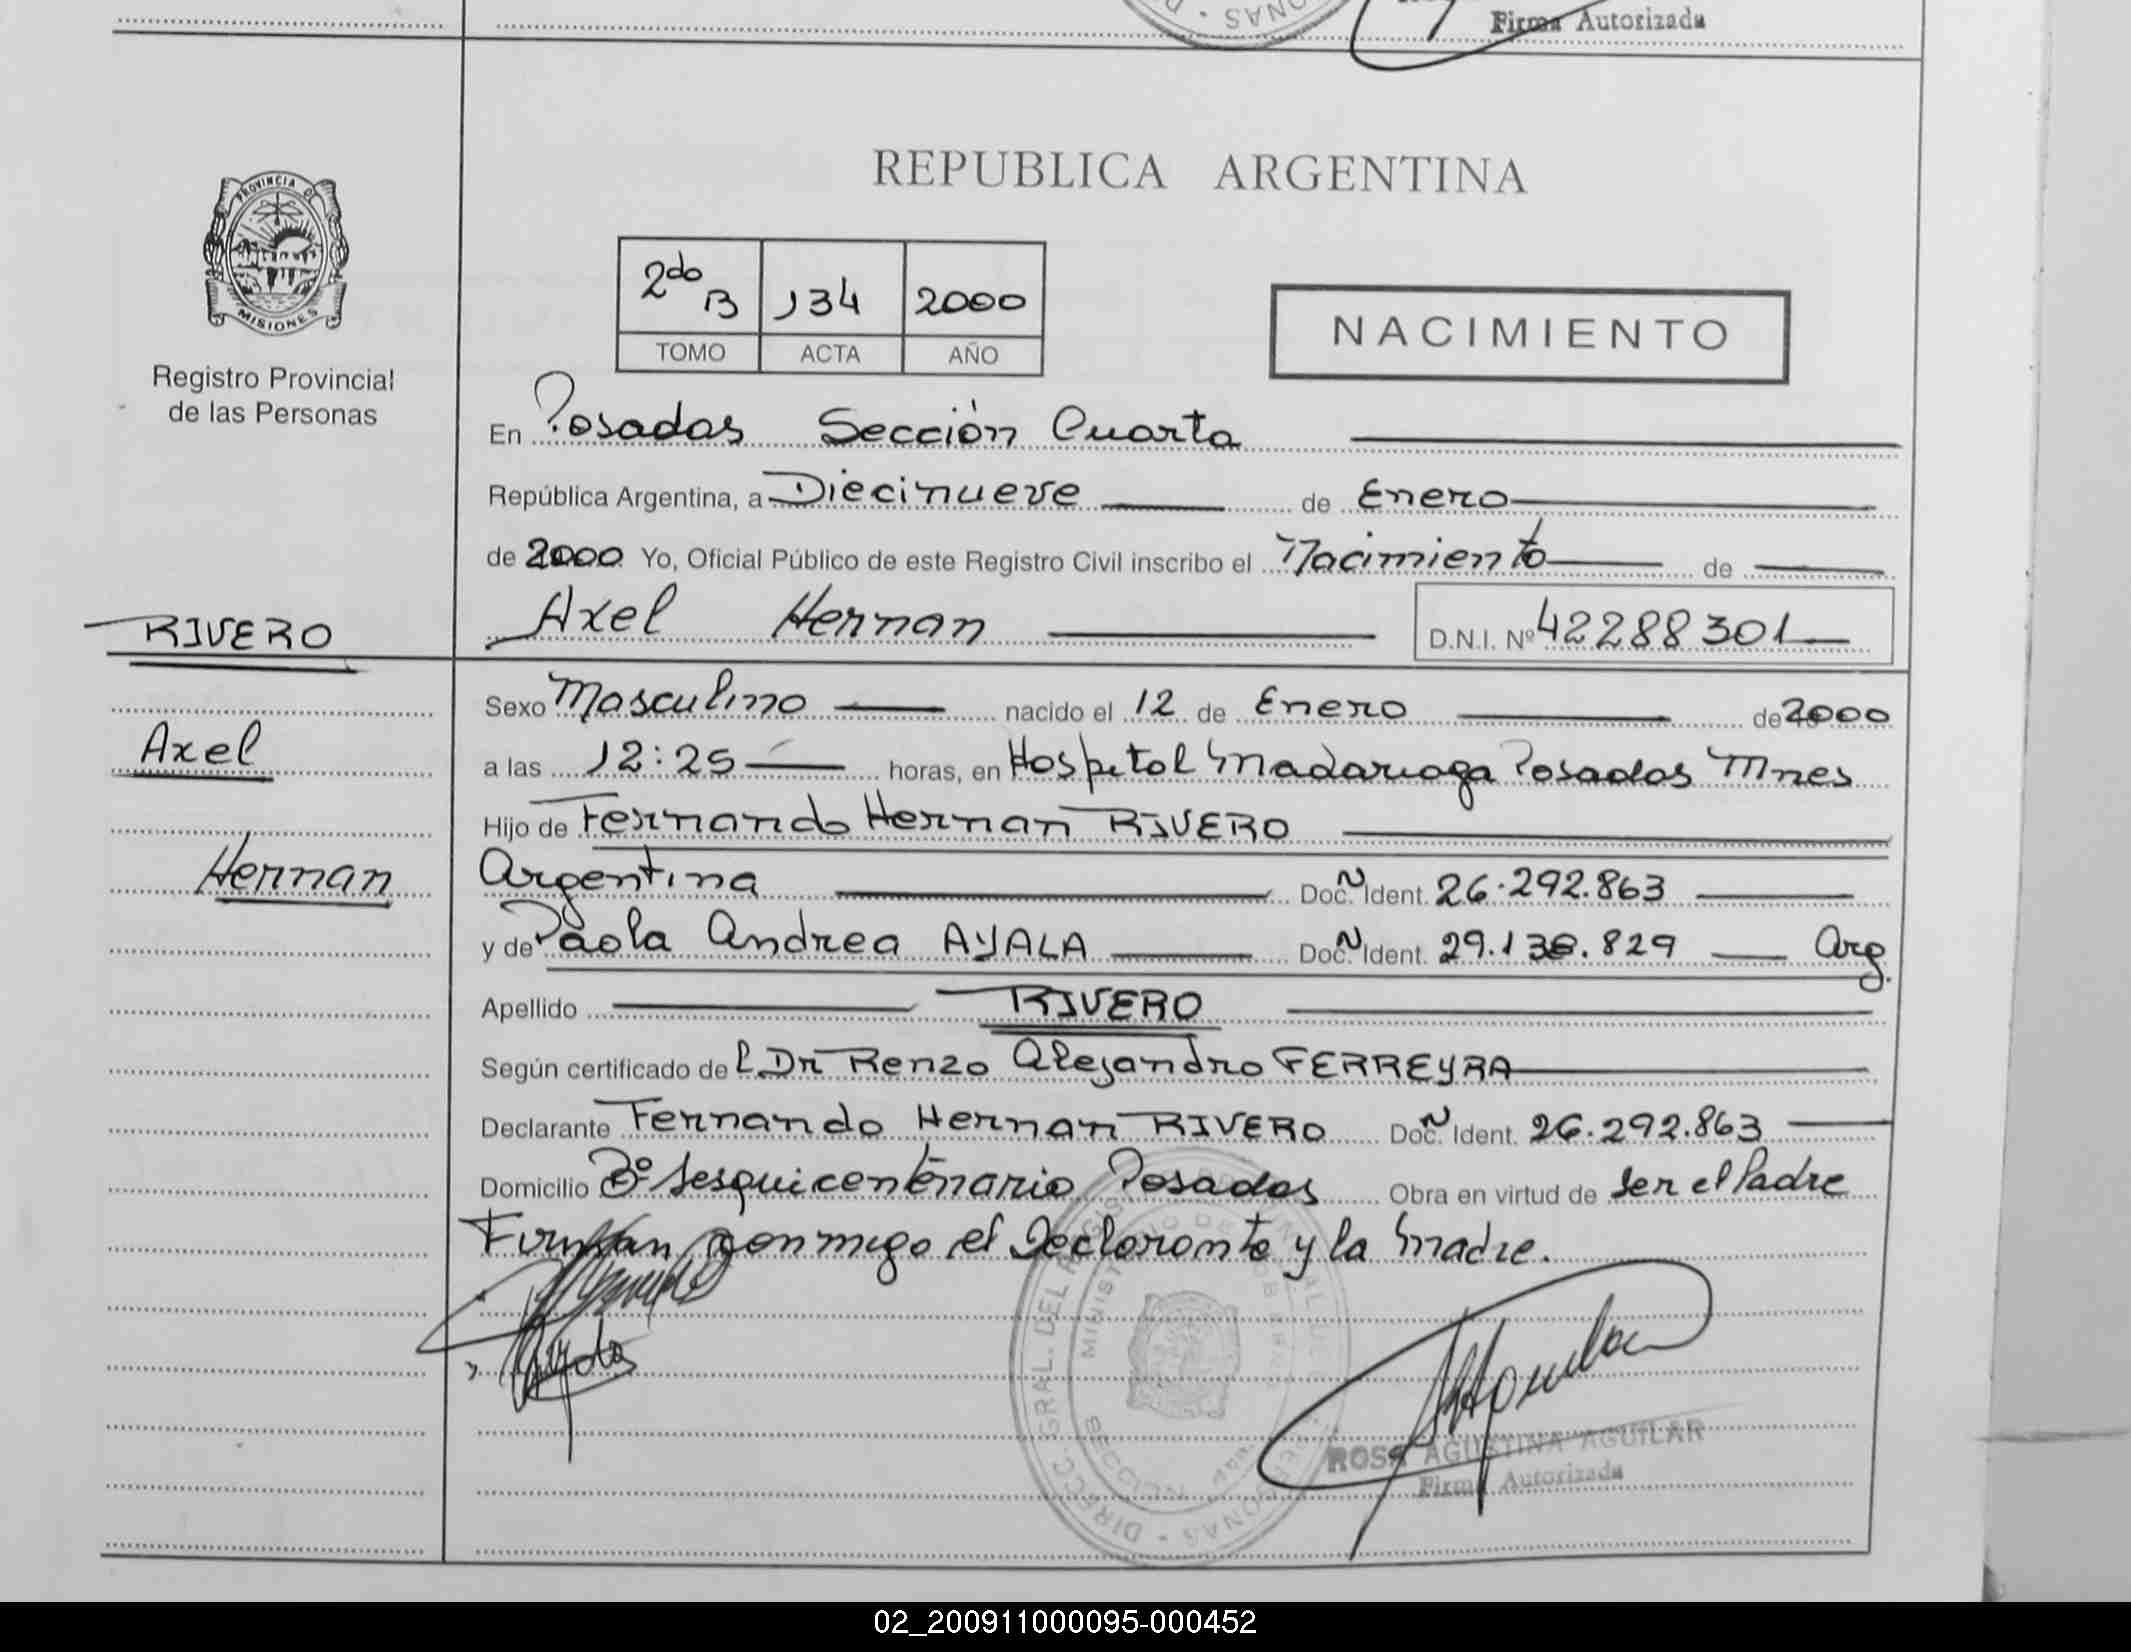 Firma Autorizada
PROVINCIA DE
MISIONES
Registro Provincial
de las Personas
REPUBLICA ARGENTINA
2do B 134 2000
TOMO ACTA AÑO
NACIMIENTO
En Posadas Sección Cuarta
República Argentina, a Diecinueve de Enero
de 2000 Yo, Oficial Público de este Registro Civil inscribo el Nacimiento de
RIVERO
Axel Hernan D.N.I. Nº 42288301
Sexo Masculino nacido el 12 de Enero de 2000
Axel
a las 12:25 horas, en Hospital Madariaga Posadas Mnes
Hijo de Fernando Hernan RIVERO
Hernan
Argentina Doc. N Ident. 26.292.863
y de Paola Andrea AYALA Doc. N Ident. 29.138.829 Arg.
Apellido RIVERO
Según certificado de l Dr Renzo Alejandro FERREYRA
Declarante Fernando Hernan RIVERO Doc. N Ident. 26.292.863
Domicilio Bº Sesquicentenario Posadas Obra en virtud de ser el Padre
Firman conmigo el Declarante y la Madre.
ROSA AGUSTINA AGUILAR
Firma Autorizada
02_200911000095-000452